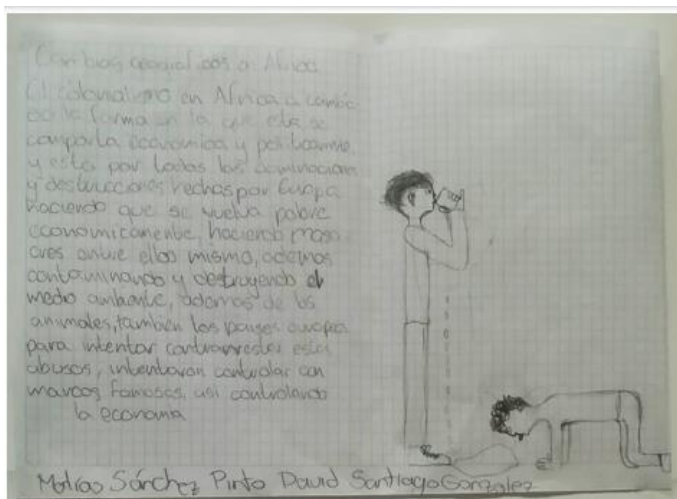 Cambios geograficos en Africa
El colonialismo en Africa a cambia
do la forma en la que ella se
comporta economica y
y esto por todas las
y destrucciones hechas por Europa
haciendo que se vuelva pobre
economicamente, haciendo masa
cres entre ellos mismo, ademas
contaminando y destruyendo el
medio ambiente, ademas de los
animales, tambien los paises
para intentar estos
abusos, intentaron controlar con
marcas famosas, asi controlando
la economia
Matias Sánchez Pinto David Santiago Gonzalez